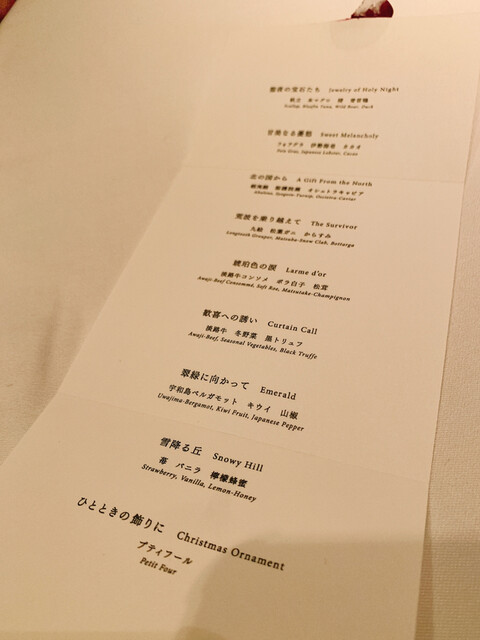 聖夜の宝石たち Jewelry of Holy Night
帆立 本マグロ 猪 青首鴨
Scallop, Bluefin Tuna, Wild Boar, Duck
甘美なる憂愁 Sweet Melancholy
フォワグラ 伊勢海老 カカオ
Foie Gras, Japanese Lobster, Cacao
北の国から A Gift From the North
オシェトラキャビア
Abalone, Turnip, Oscietra-Caviar
荒波を乗り越えて The Survivor
九絵 松葉ガニ からすみ
Longtooth Grouper, Matsuba-Snow Crab, Bottarga
琥珀色の涙 Larme d'or
淡路牛コンソメ ボラ白子 松茸
Awaji-Beef Consommé, Soft Roe, Matsutake-Champignon
歓喜への誘い Curtain Call
淡路牛 冬野菜 黒トリュフ
Awaji-Beef, Seasonal Vegetables, Black Truffe
翠緑に向かって Emerald
宇和島ベルガモット キウイ 山椒
Uwajima-Bergamot, Kiwi Fruit, Japanese Pepper
雪降る丘 Snowy Hill
苺 バニラ 檸檬蜂蜜
Strawberry, Vanilla, Lemon-Honey
ひとときの飾りに Christmas Ornament
プティフール
Petit Four